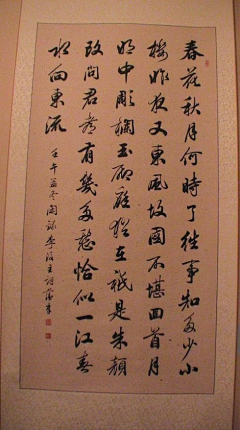 春花秋月何時了往事知多少小
樓昨夜又東風故國不堪回首月
明中彫欄玉砌應猶在祇是朱顏
改問君有幾多愁恰似一江春
水向東流
壬午孟冬 錄李後主詞